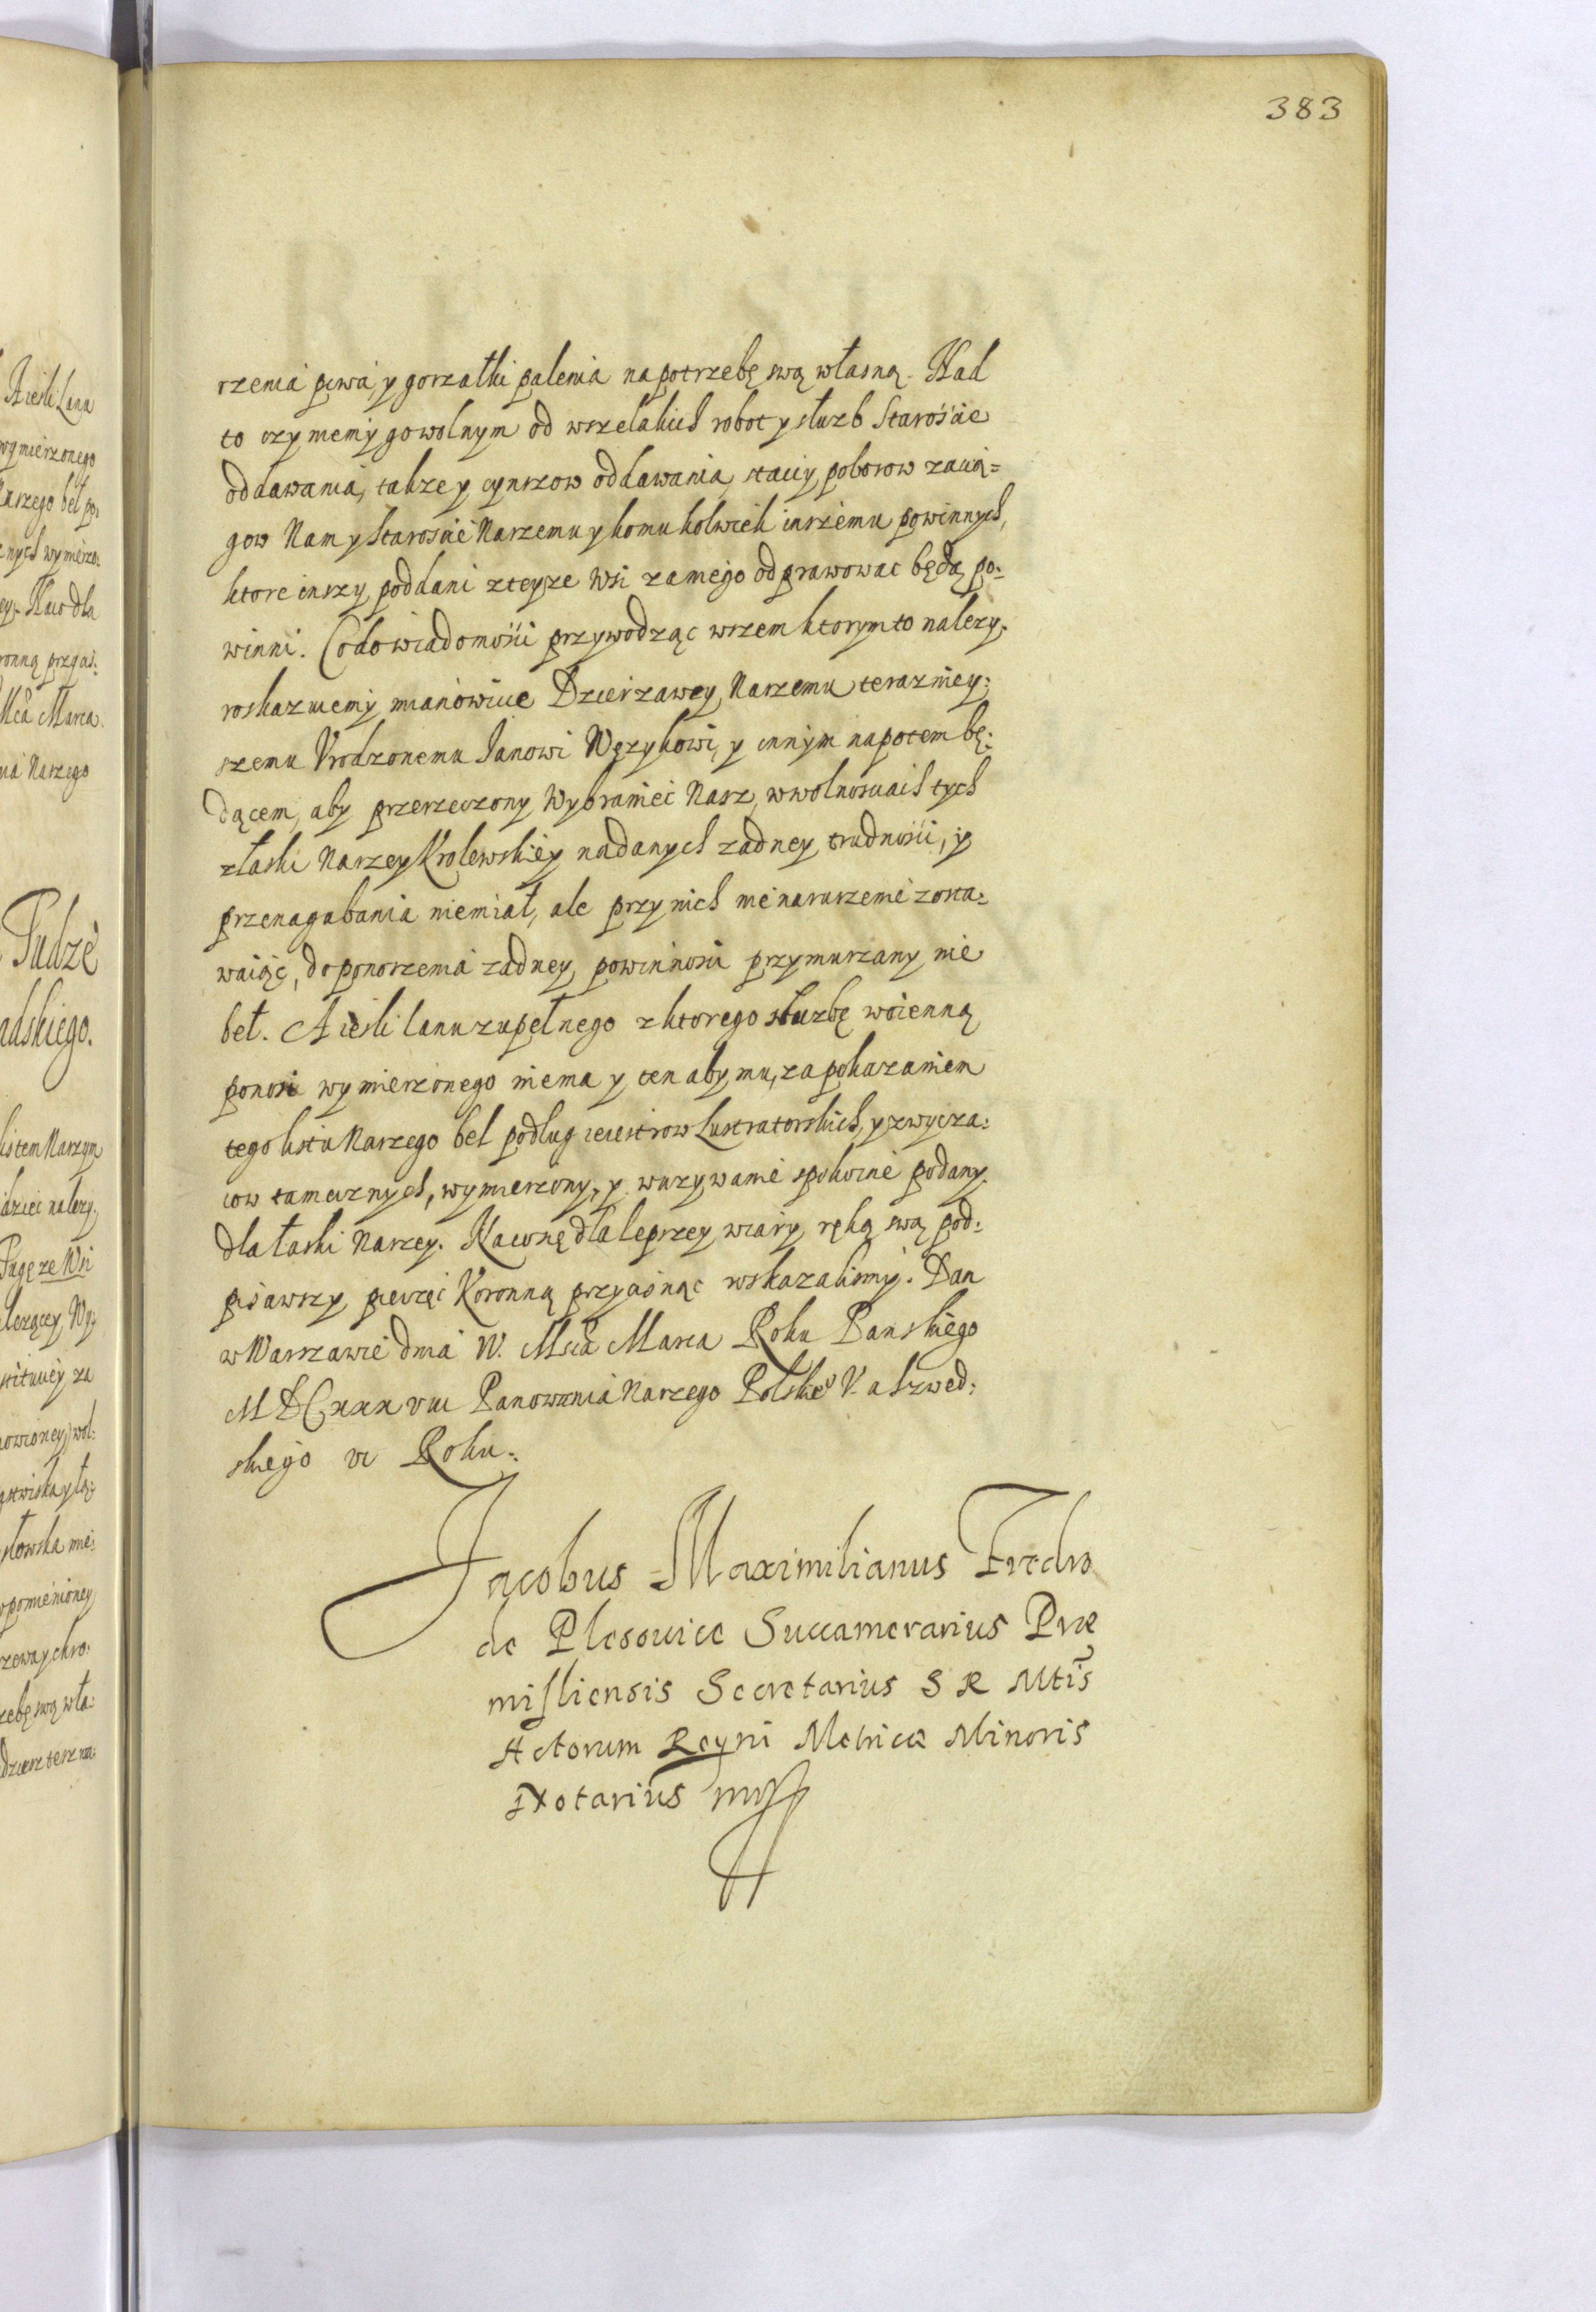 383
rzenia piwa, y gorzałki palenia na potrzebę swą własną. Nad
to czyniemy go wolnym od wszelakich robot y służb Starośćie
oddawania, także y czynszow oddawania, staciy poborow zacią=
gow Nam y Starosćie Naszemu y komu kolwiek inszemu powinnych,
ktore inszy poddani z teyze Wsi za niego odprawowac będą po:
winni. Co do wiadomośći przywodząc wszem ktorym to należy.
roskazuiemy mianowicie Dzierzawcy Naszemu terazniey:
szemu Vrodzonemu Janowi Wężykowi, y innym napotem bę:
dącem, aby przerzeczony Wybraniec Nasz, w wolnosciach tych
z łaski Naszey Krolewskiey nadanych zadney trudnośći, y
przenagabania niemiał, ale przy nich nienaruszenie zosta:
waiąc, do ponoszenia zadney powinnosci przymuszany nie
beł. A iesli łanu zupełnego z ktorego służbę woienną
ponosi wymierzonego niema y ten aby mu, za pokazaniem
tego listu Naszego beł podług reiestrow Lustratorskich, y zwycza:
iow tamecznych, wymierzony, y w uzywanie spokoine podany.
dla łaski Naszey. Na co się dla lepszey wiary ręką swą pod:
pisawszy pieczęć Koronną przycisnąć roskazalismy. Dan
w Warszawie dnia W. Msca Marca Roku Panskiego
MDCxxxviii Panowania Naszego Polskieo V. a Szwed:
skiego vi Roku.
Jacobus Maximilianus Fredro
de Plesovice Succamerarius Præ
misliensis Secretarius S R Mtis
Actorum Regni Metricæ Minoris
Notarius mpp
A iesli Łanu
wymierzonego
Naszego beł po:
wymierzo:
dla
ronną przycis:
Msca Marca
Naszego
Sudze
adskiego.
listem Naszym
należy
ze Wsi